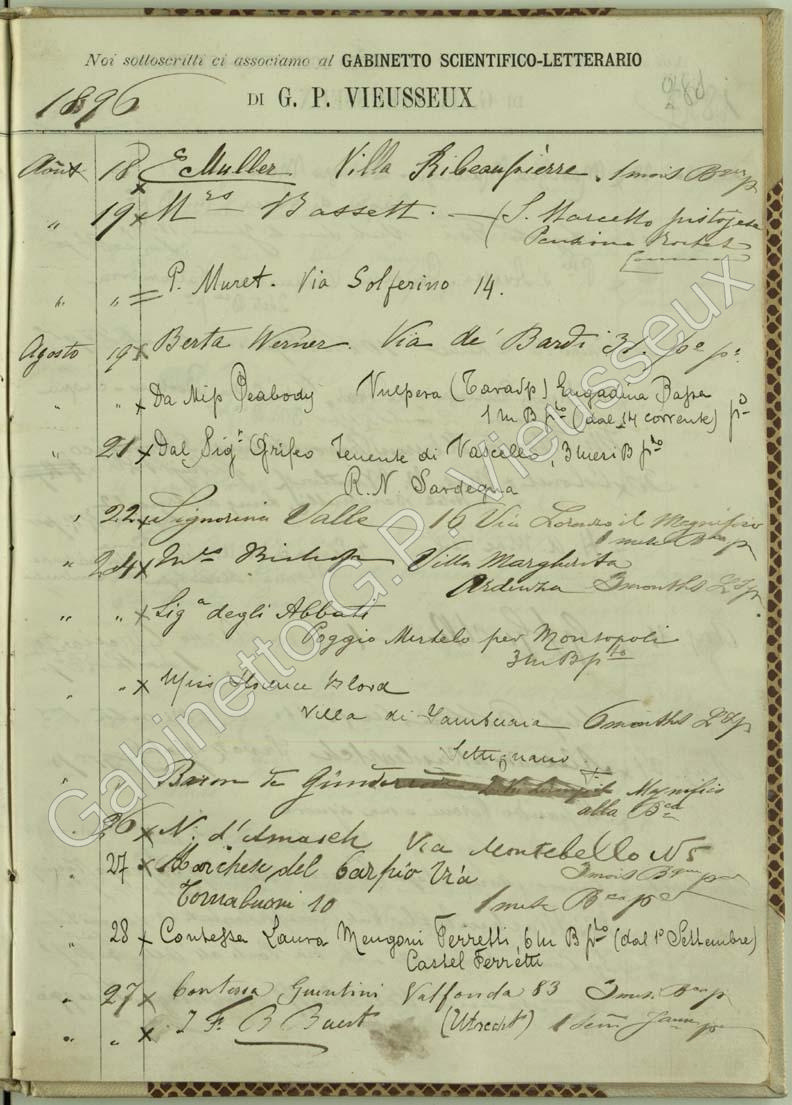 Noi sottoscritti ci associamo al GABINETTO SCIENTIFICO-LETTERARIO
1896 DI G. P. VIEUSSEUX
Août 18 x E Muller Villa Ribeaupierre. 1 mois B p
" 19 x Mrs Bassett. — (S. Marcello pistojese
Pensione
" " = P. Muret. Via Solferino 14.
Agosto 19 x Berta Werner. Via de' Bardi 31.
" x Da Miss Peabody Vulpera (Tarasp) Engadina Bassa
1 m B pto (dal 14 corrente) po
" 21 x Dal Sigr Grifeo Tenente di Vascello, 3 mesi B pto
R.N Sardegna
" 22 x Signorina Valle 16 Via Lorenzo il Magnifico
1 mese p
" 24 x Mrs Bishop Villa Margherita
Ardenza 3 months p
" " x Siga degli Abbati
Poggio Mirtelo per Montopoli
3 m B pto
" " x Miss
Villa di 6 months p
Settignano
" Baron de Magnifico
alla
" 26 x N. d'Amasch Via Montebello N 5
3 mois B
27 x Marchese del Carpio Via
Tornabuoni 10 1 mese p
" 28 x Contessa Laura Mengoni Ferretti, 6 m B pto (dal 1o Settembre)
Castel Ferretti
" 27 x Contessa Guintini Valfonda 83 3 mesi p
" " x J F. B Baert (Utrecht) 1
Gabinetto G.P. Vieusseux